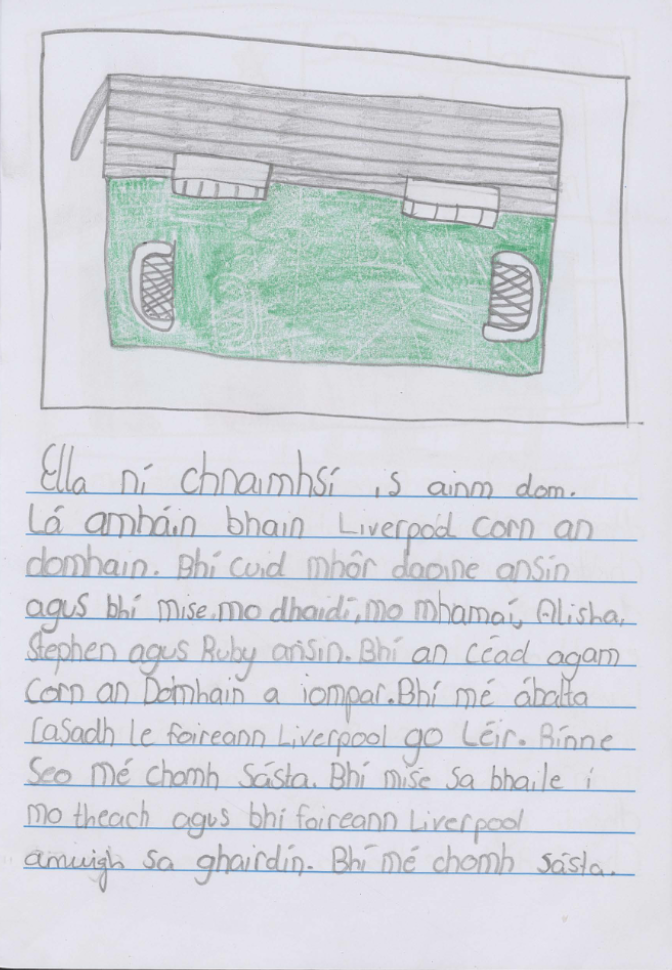 Ella ní chnaimhsí is ainm dom.
Lá amháin bhain Liverpool corn an
domhain. Bhí cuid mhór daoine ansin
agus bhí mise, mo dhaidí, mo mhamaí, Alisha,
Stephen agus Ruby ansin. Bhí an céad agam
Corn an Domhain a iompar. Bhí mé ábalta
casadh le foireann Liverpool go Léir. Rinne
Seo mé chomh sásta. Bhí mise sa bhaile i
mo theach agus bhí foireann Liverpool
amuigh sa ghairdín. Bhí mé chomh sásta.